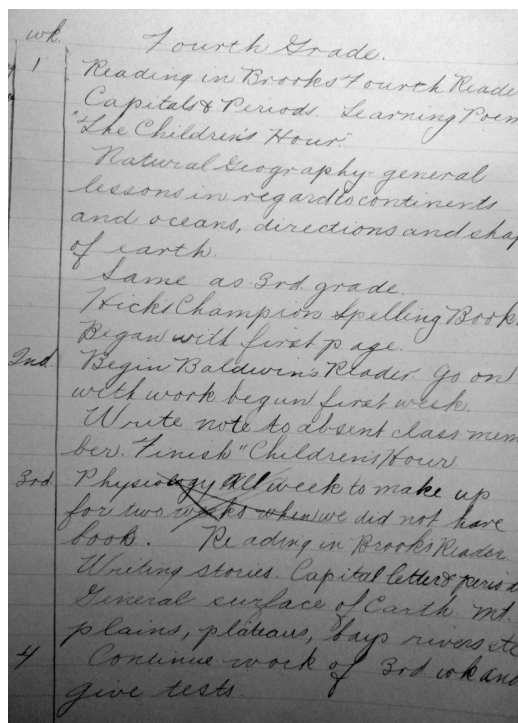 wk. Fourth Grade.
1 Reading in Brooks Fourth Reade
Capitals & Periods. Learning Poem
"The Children's Hour".
Natural Geography - general
lessons in regard to continents
and oceans, directions and shap
of earth.
Same as 3rd. grade.
Hicks Champion Spelling Book.
Began with first page.
2nd Begin Baldwin's Reader. Go on
with work begun first week.
Write note to absent class mem
ber. Finish "Children's Hour
3rd Physiology All week to make up
for two weeks when we did not have
book. Reading in Brook's Reader
Writing stories. Capital letter & period
General surface of Earth. Mt.
plains, plateaus, bays rivers etc
4 Continue work of 3rd wk and
give tests.